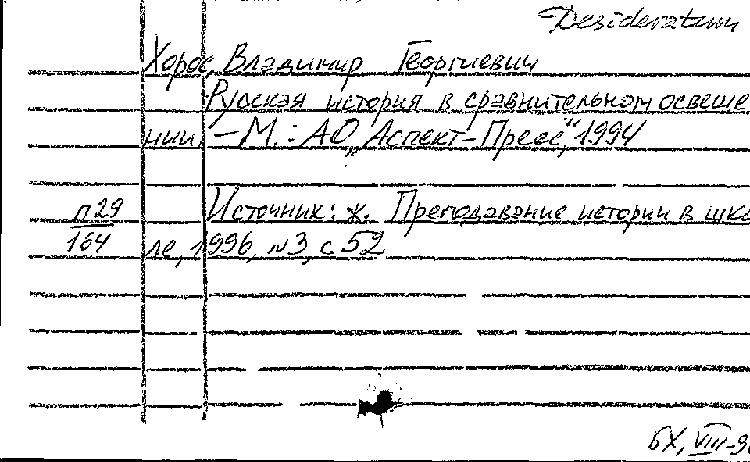 Desideratum
Хорос, Владимир Георгиевич
Русская история в сравнительном освеще
нии. – М.: АО „Аспект-Пресс“, 1994
п29
164
Источник: ж. Преподавание истории в шко
ле, 1996, №3, с 52
БХ, VIII-9